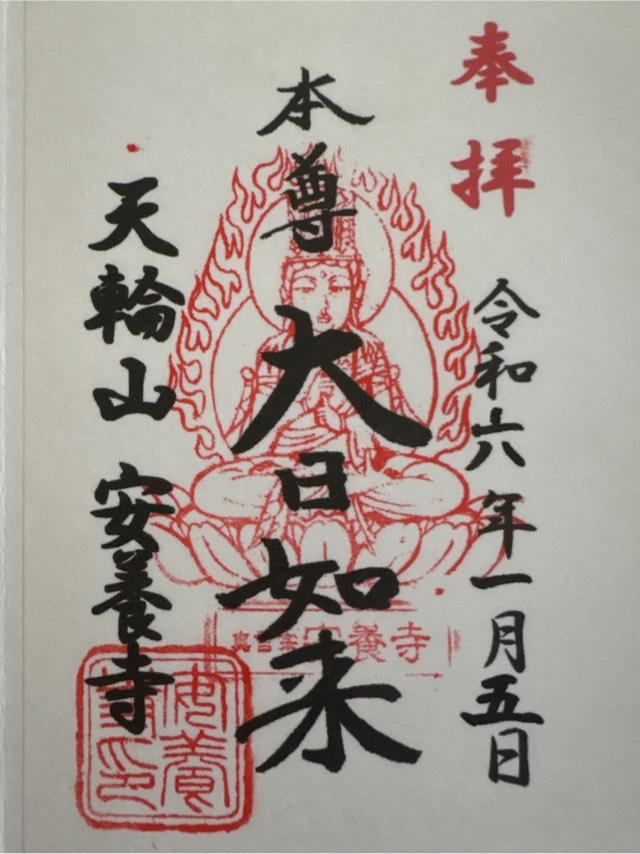 奉拝
令和六年一月五日
本尊 大日如来
天輪山 安養寺
安養寺
安養寺印